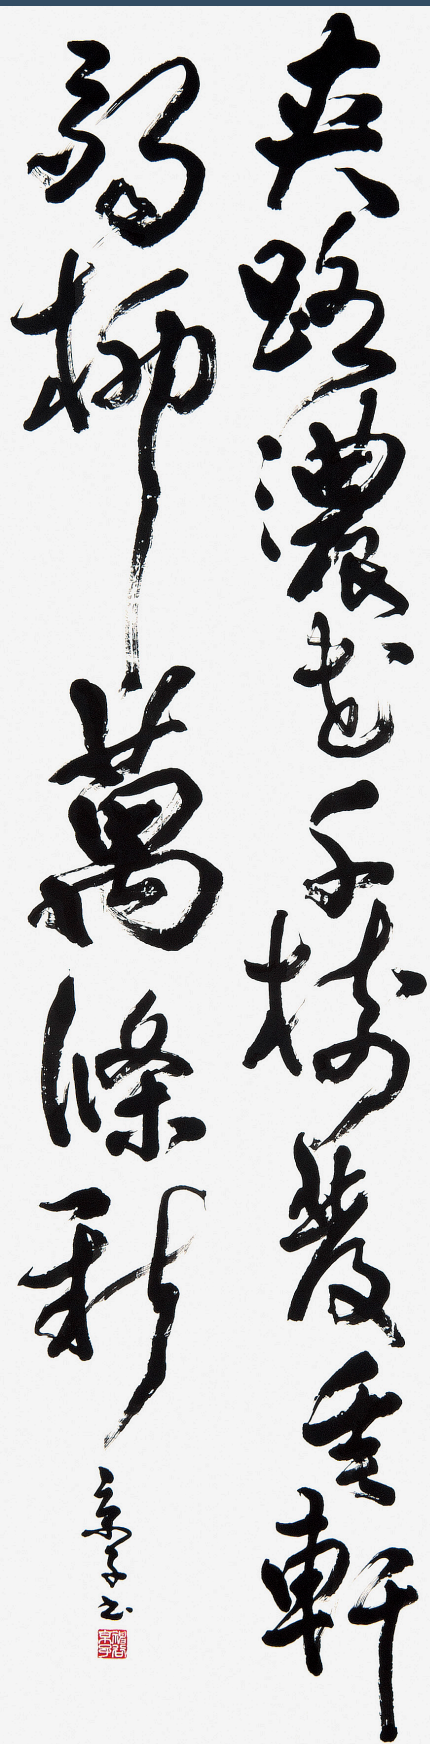 夾路濃花千樹發垂軒
弱柳萬條新
京子書